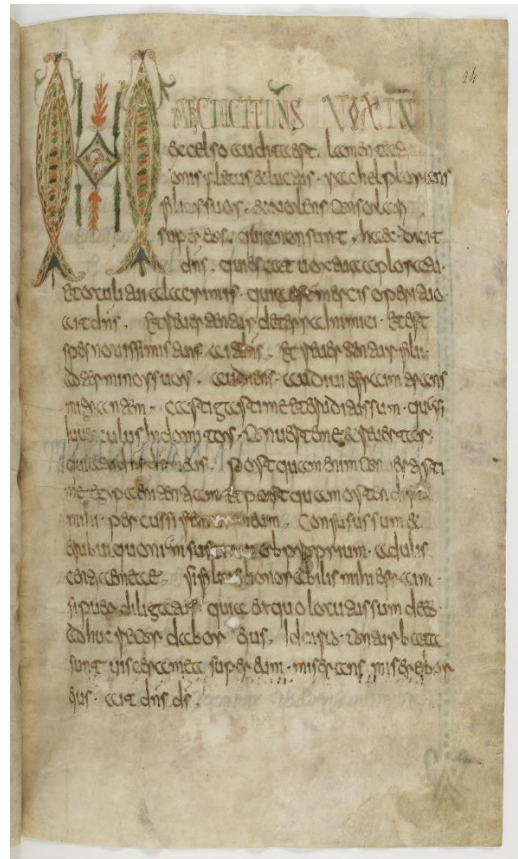 24
HAEC DICIT DNS VOX IN
excelso audita est. lamentati
onis fletus & luctus. rachel plorantis
filios suos. & nolens consolari
super eos. quia non sunt. haec dicit
dns. quiescat uox tua a plora
& oculi tui a lacrimis. quia est mercis operi tuo.
ait dns. & reuertentur de terra inimici. & est
spes nouissimis tuis. ait dns. & reuertentur filii
ad terminos suos. audiens audiui effraim trans
migrantem. castigasti me & eruditus sum. quasi
iuuenculus indomitus. conuerte me & reuertar
quia tu dns ds meus. postquam enim conuertisti
me egi paenitentiam & postquam ostendisti
mihi percussi femur meum. confusus sum &
erubui quoniam sustinui obproprium adulis
centiae. si filius honorabilis mihi effraim.
si puer diligatus. quia ex quo locutus sum de eo
adhuc recordabor eius. idcirco conturbata
sunt uiscera mea super eum. miserans miserebor
eius. ait dns ds